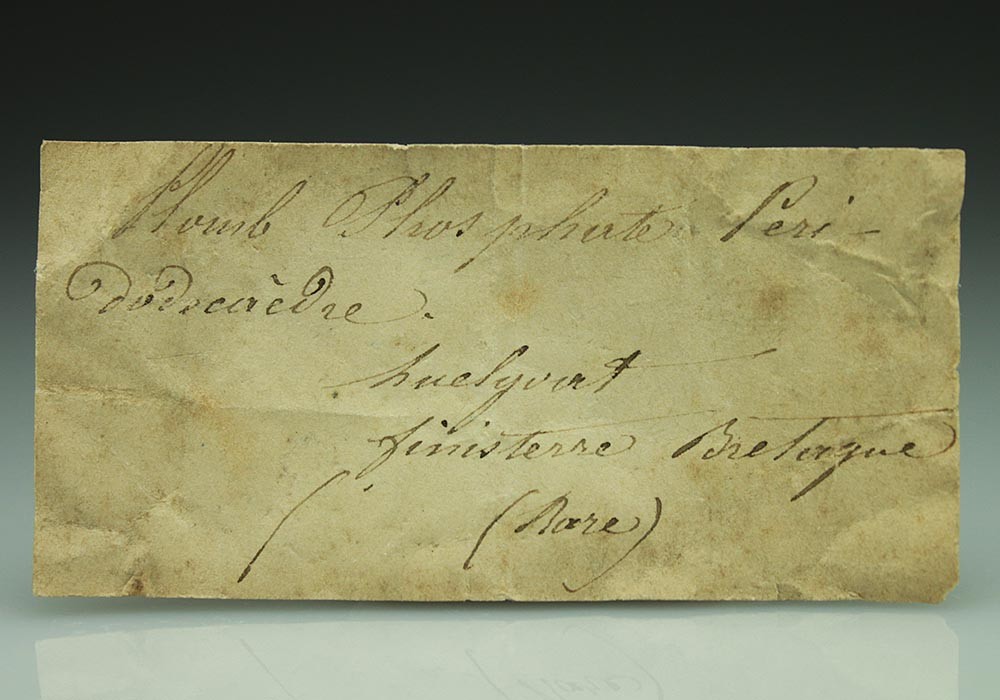 Plomb Phosphaté Péri-
dodécaèdre.
huelgoat
finisterre Bretagne
(Rare)